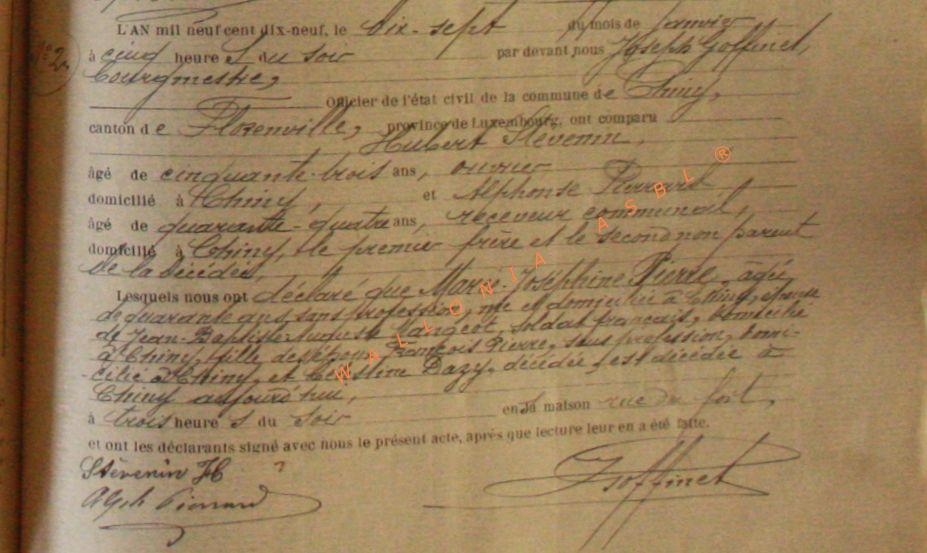 N° 2
L'AN mil neuf cent dix-neuf, le dix-sept du mois de Janvier
à cinq heures du soir par devant nous Joseph Goffinet,
bourgmestre,
Officier de l'état civil de la commune de Chiny,
canton de Florenville, province de Luxembourg, ont comparu
Hubert Stevenin,
âgé de cinquante-trois ans, ouvrier
domicilié à Chiny, et Alphonse
âgé de quarante-quatre ans, receveur communal,
domicilié à Chiny, le premier frère et le second non parent
de la décédée,
Lesquels nous ont déclaré que Marie-Joséphine Pierre, âgée
de quarante ans sans profession, née et domiciliée à Chiny, épouse
de Jean-Baptiste Auguste Mangeot, soldat français, domicilié
à Chiny, fille de François Pierre, sans profession, domi-
cilié à Chiny, et Célestine Dazy, décédée, est décédée à
Chiny aujourd'hui,
à trois heures du soir en sa maison rue du fort,
et ont les déclarants signé avec nous le présent acte, après que lecture leur en a été faite.
Stévenin H
Goffinet
Alph
WALLONIA ASBL ®